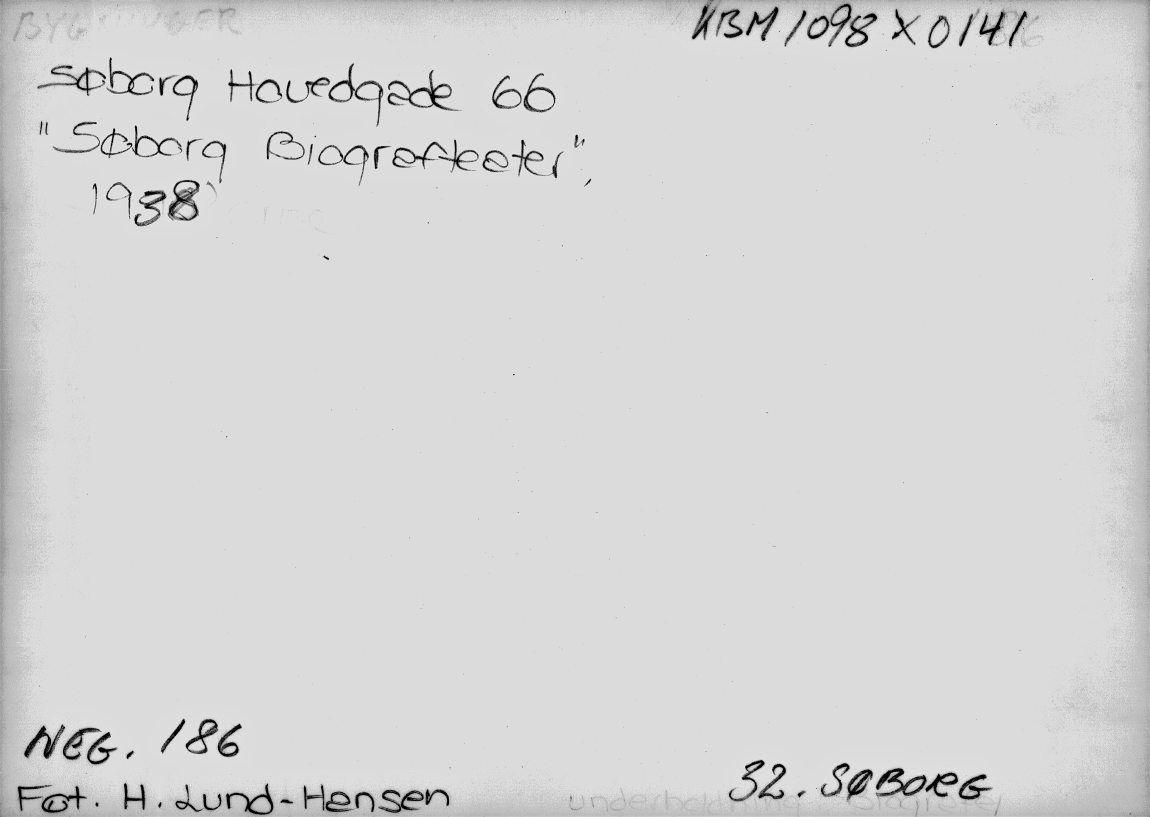 BYGNINGER
KBM 1098 X 0141
Søborg Hovedgade 66
"Søborg Biografteater",
1938
NEG. 186
Fot. H. Lund-Hansen
32. SØBORG
underholdning Biografer